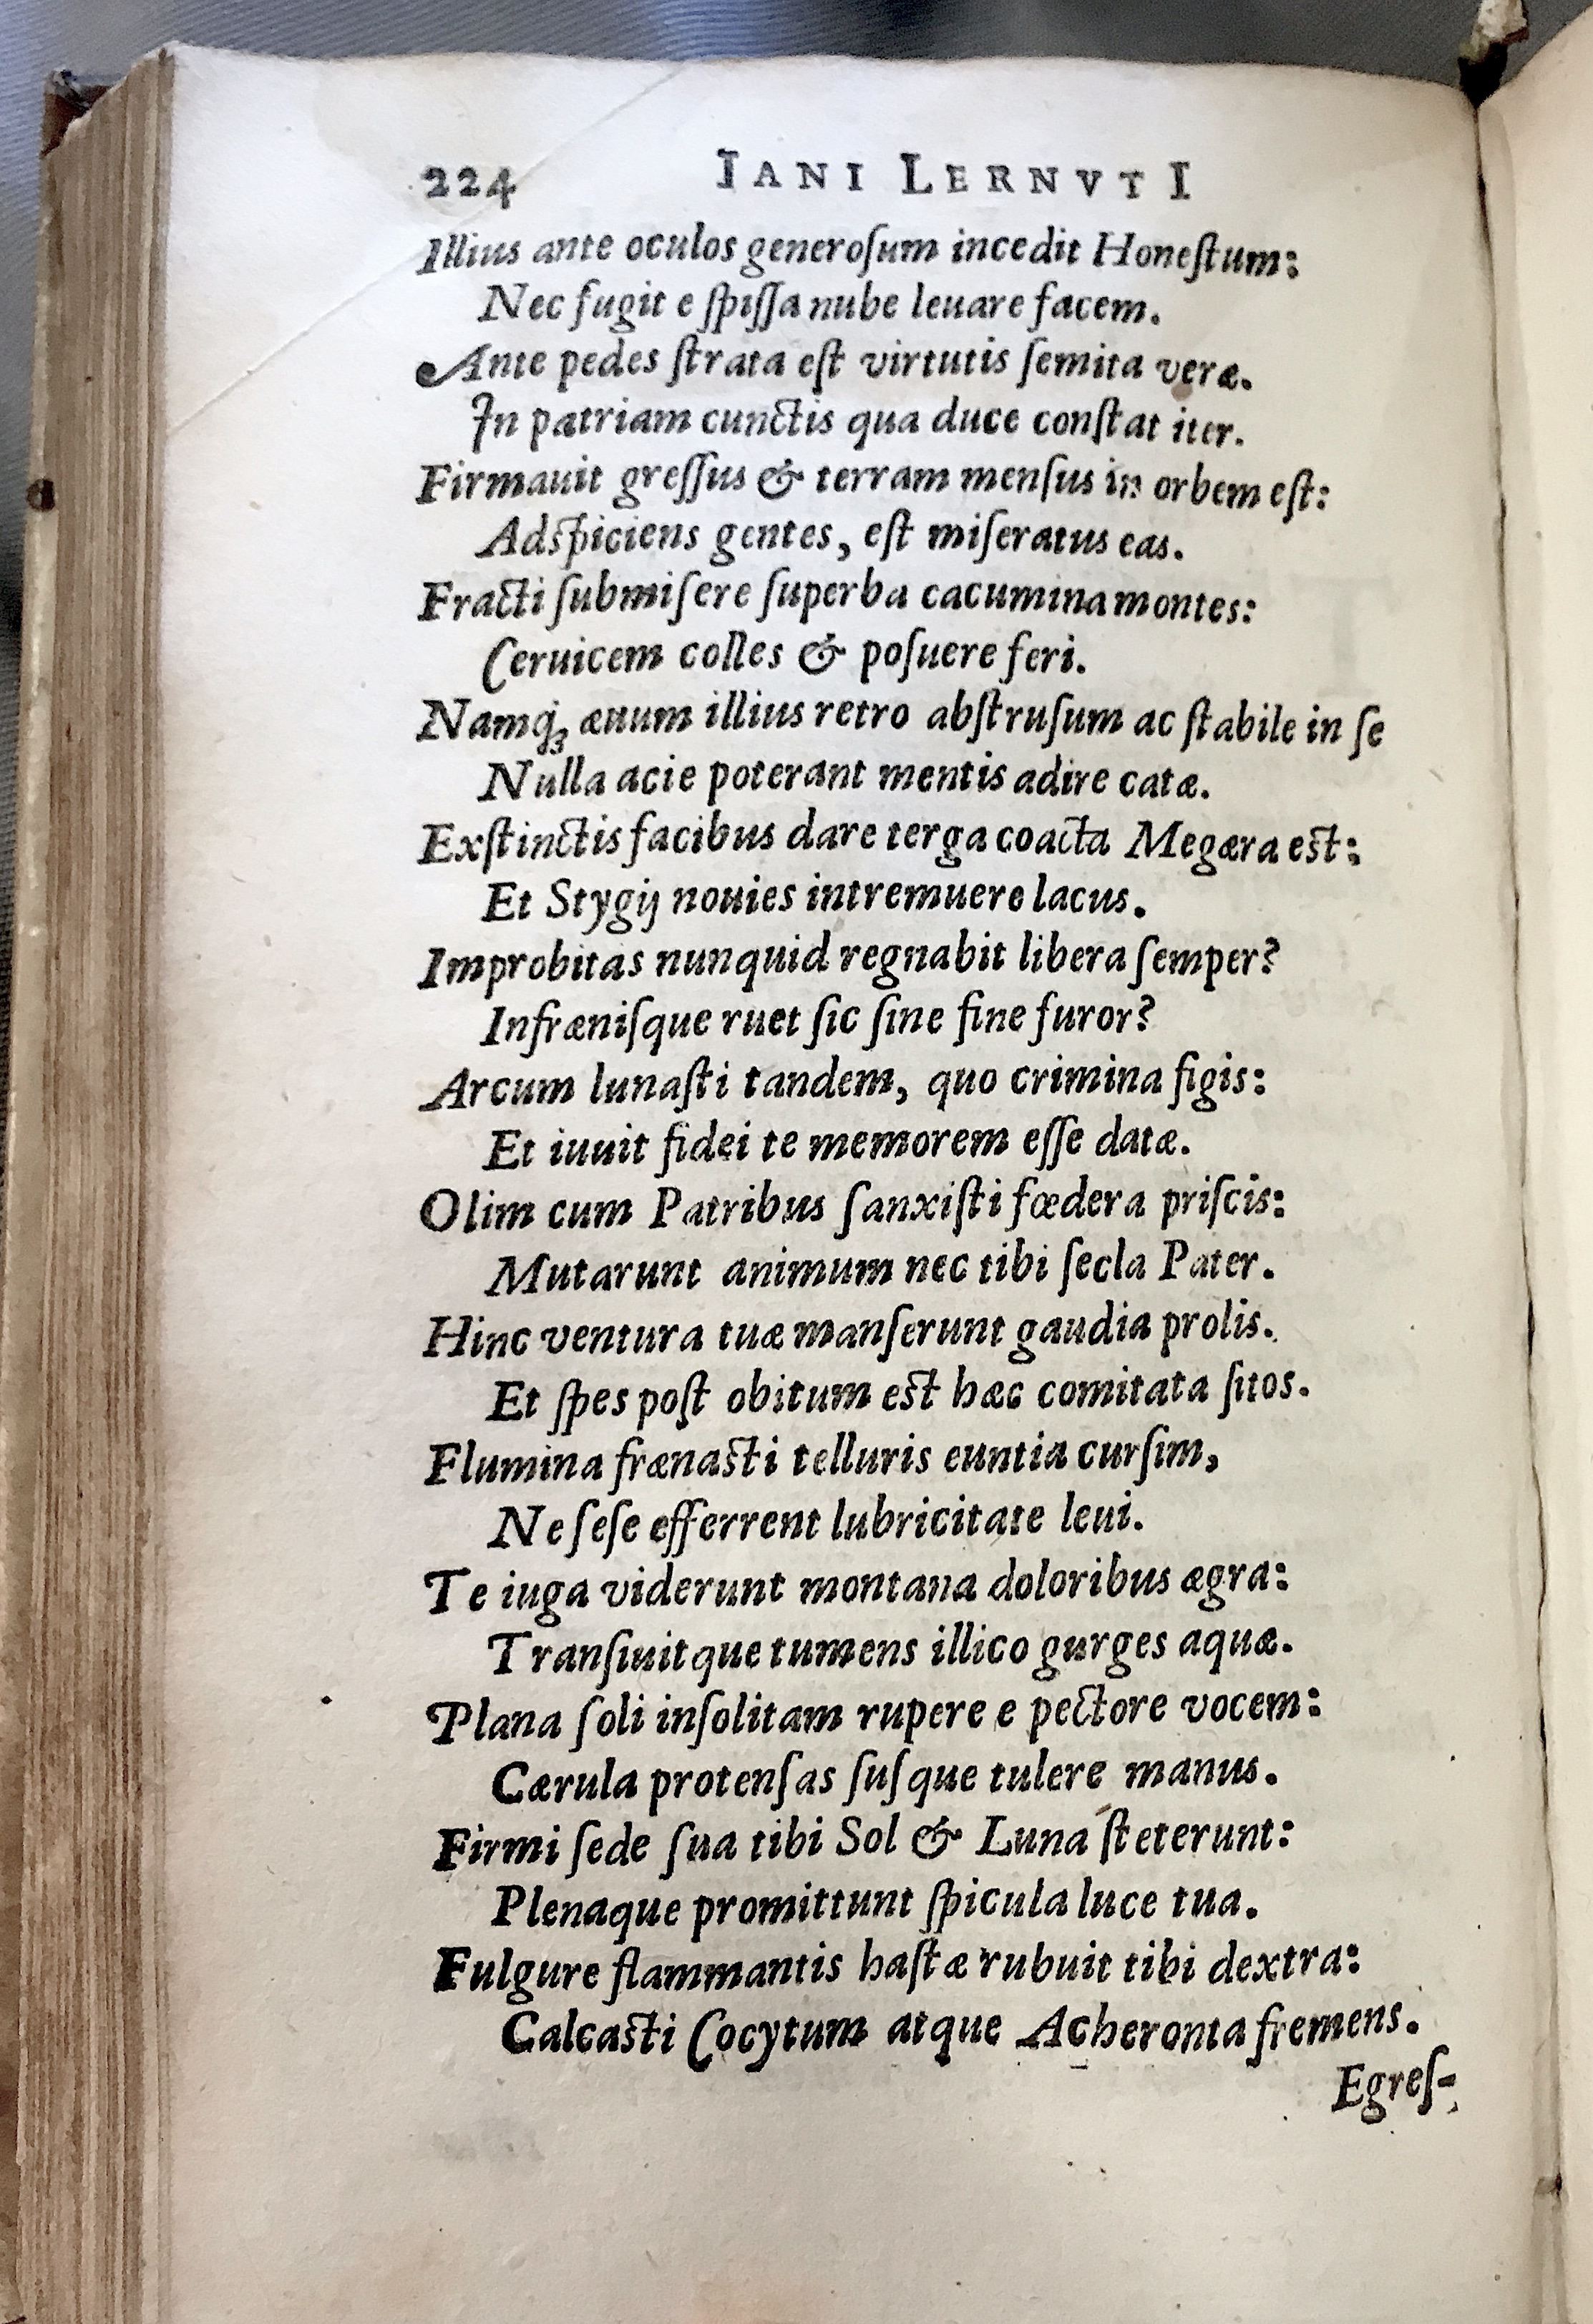 224 IANI LERNVTI
Illius ante oculos generoſum incedit Honeſtum:
Nec fugit e ſpiſſa nube leuare facem.
Ante pedes ſtrata eſt virtutis ſemita veræ.
In patriam cunctis qua duce conſtat iter.
Firmauit greſſus & terram menſus in orbem eſt:
Adſpiciens gentes, eſt miſeratus eas.
Fracti ſubmiſere ſuperba cacumina montes:
Ceruicem colles & poſuere feri.
Namq; æuum illius retro abſtruſum ac ſtabile in ſe
Nulla acie poterant mentis adire catæ.
Exſtinctis facibus dare terga coacta Megæra eſt:
Et Stygij nouies intremuere lacus.
Improbitas nunquid regnabit libera ſemper?
Infræniſque ruet ſic ſine fine furor?
Arcum lunaſti tandem, quo crimina figis:
Et iuuit fidei te memorem eſſe datæ.
Olim cum Patribus ſanxiſti fœdera priſcis:
Mutarunt animum nec tibi ſecla Pater.
Hinc ventura tuæ manſerunt gaudia prolis.
Et ſpes poſt obitum eſt hæc comitata ſitos.
Flumina frænaſti telluris euntia curſim,
Ne ſeſe efferrent lubricitate leui.
Te iuga viderunt montana doloribus ægra:
Tranſiuitque tumens illico gurges aquæ.
Plana ſoli inſolitam rupere e pectore vocem:
Cærula protenſas ſuſque tulere manus.
Firmi ſede ſua tibi Sol & Luna ſteterunt:
Plenaque promittunt ſpicula luce tua.
Fulgure flammantis haſtæ rubuit tibi dextra:
Calcaſti Cocytum atque Acheronta fremens.
Egreſ-